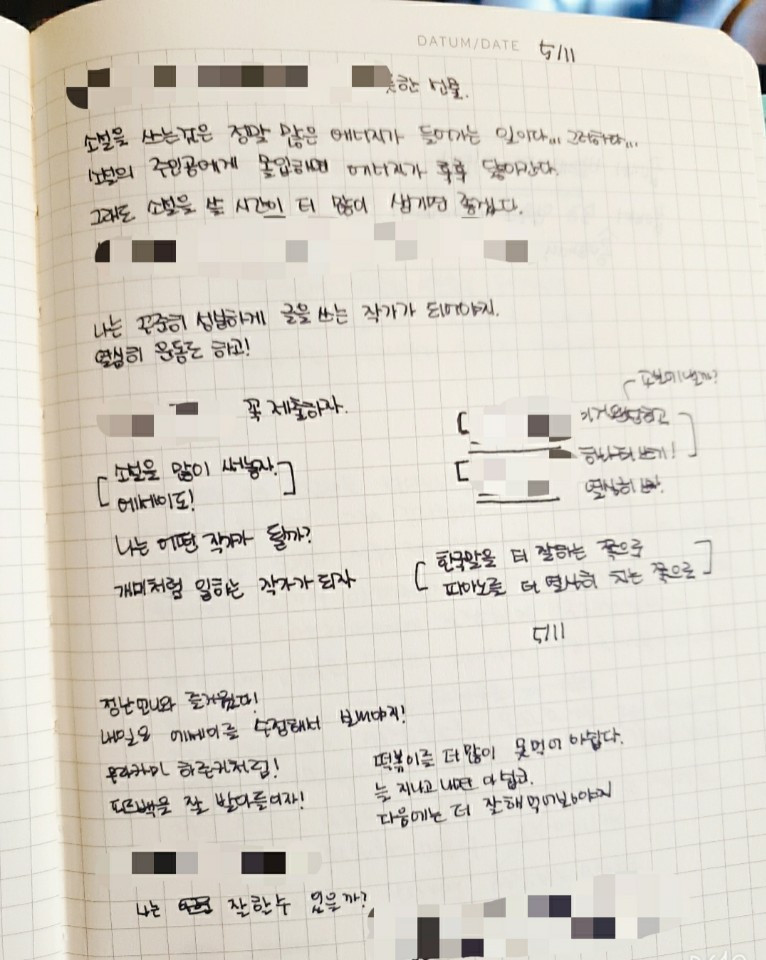 DATUM/DATE 5/11
한 선물.
소설을 쓰는 것은 정말 많은 에너지가 들어가는 일이다... 그러하다...
소설의 주인공에게 몰입하면 에너지가 후후 닳아간다.
그래도 소설을 쓸 시간이 더 많이 생기면 좋겠다.
나는 꾸준히 성실하게 글을 쓰는 작가가 되어야지.
열심히 운동도 하고!
꼭 제출하자.
[소설을 많이 써놓자.
에세이도!]
나는 어떤 작가가 될까?
개미처럼 일하는 작가가 되자
이거 완성하고
하나 더 쓰기!
열심히
[한국말을 더 잘하는 쪽으로
피아노를 더 열심히 치는 쪽으로]
5/11
즐거웠다!
내일은 에세이를 수정해서 보내야지!
무라카미 하루키처럼!
피드백을 잘 받아들이자!
떡볶이를 더 많이 못먹어 아쉽다.
늘 지나고 나면 아쉽고.
다음에는 더 잘 해먹어봐야지
나는 잘할 수 있을까?